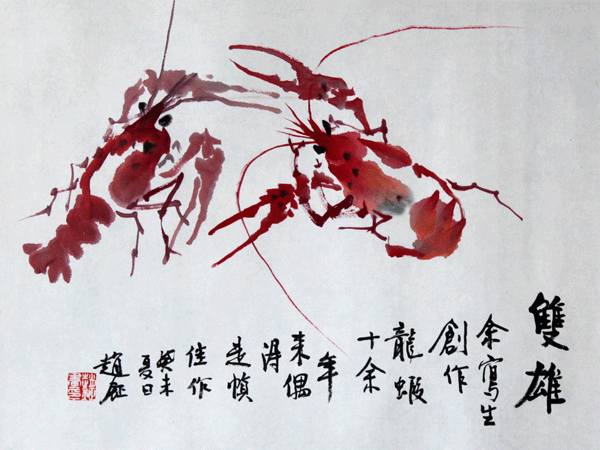 雙雄
余寫生
創作
龍蝦
十余
年
来偶
得
是幀
佳作
癸未
夏日
趙